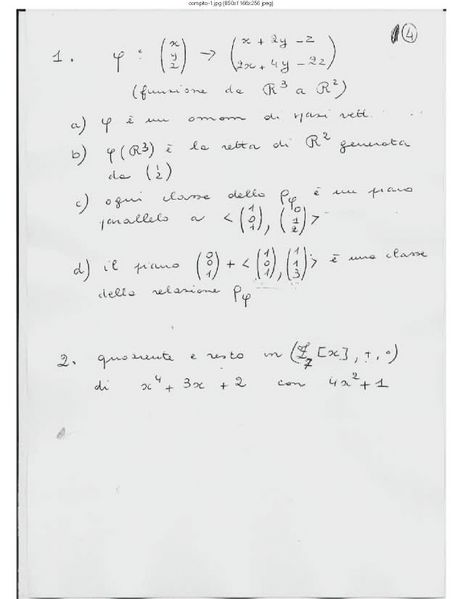 compito-1.jpg (850x1166x256 jpeg)
④
1. φ : (x y z) → (x + 2y - z 2x + 4y - 2z)
(funzione da R³ a R²)
a) φ è un omom di spazi vett.
b) φ(R³) è la retta di R² generata
da (1 2)
c) ogni classe della ρφ è un piano
parallelo a <(1 0 1), (0 1 2)>
d) il piano (0 0 1) + <(1 0 1), (1 1 3)> è una classe
della relazione ρφ
2. quoziente e resto in (Z₇[x], +, ·)
di x⁴ + 3x + 2 con 4x² + 1